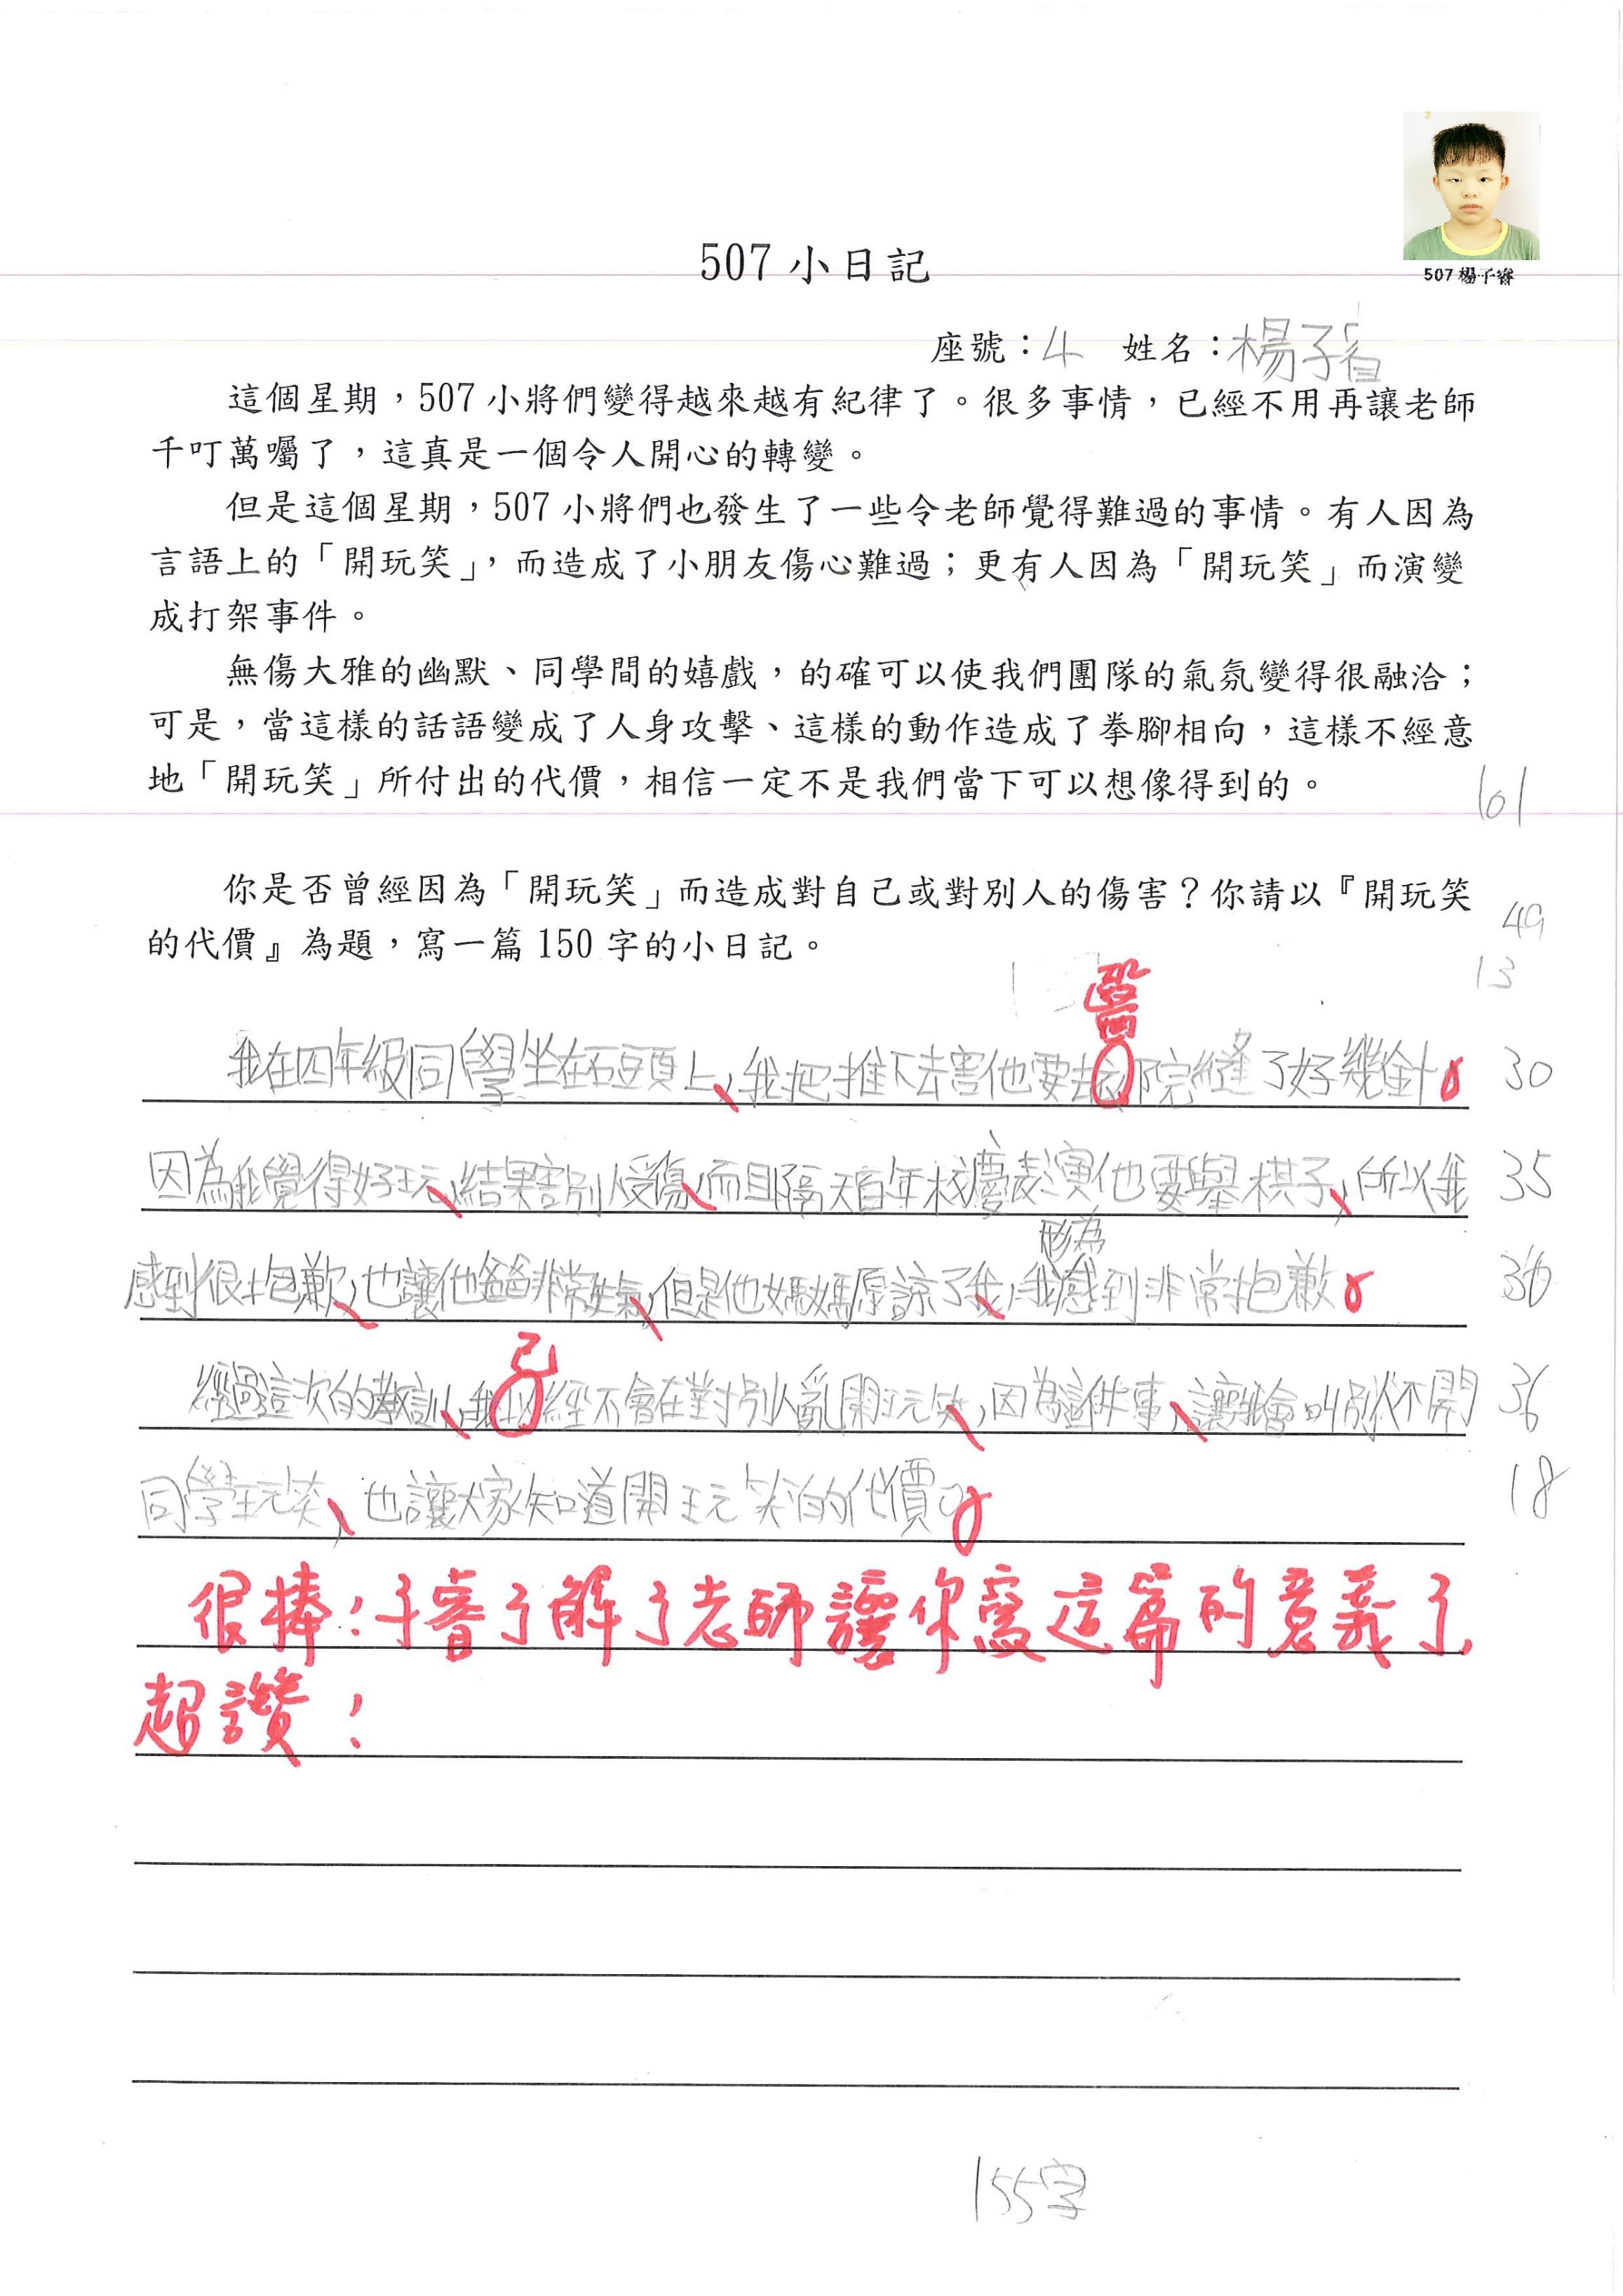 507 楊子睿
507 小日記
座號：4 姓名：楊子睿
這個星期，507 小將們變得越來越有紀律了。很多事情，已經不用再讓老師
千叮萬囑了，這真是一個令人開心的轉變。
但是這個星期，507 小將們也發生了一些令老師覺得難過的事情。有人因為
言語上的「開玩笑」，而造成了小朋友傷心難過；更有人因為「開玩笑」而演變
成打架事件。
無傷大雅的幽默、同學間的嬉戲，的確可以使我們團隊的氣氛變得很融洽；
可是，當這樣的話語變成了人身攻擊、這樣的動作造成了拳腳相向，這樣不經意
地「開玩笑」所付出的代價，相信一定不是我們當下可以想像得到的。
101
你是否曾經因為「開玩笑」而造成對自己或對別人的傷害？你請以『開玩笑
49
的代價』為題，寫一篇 150 字的小日記。
13
醫
我在四年級同學坐在石頭上，我把推下去害他要去院縫了好幾針。 30
因為我覺得好玩，結果害別人受傷，而且隔天百年校慶表演他要舉棋子，所以我 35
形為
感到很抱歉，也讓他爸爸非常生氣，但是他媽媽原諒了我，我感到非常抱歉。 36
已
經過這次的教訓，我以經不會在對別人亂開玩笑，因為這件事，讓我會叫別人不開 36
同學玩笑，也讓大家知道開玩笑的代價。 18
很棒！子睿了解了老師讓你寫這篇的意義了，
超讚！
155字